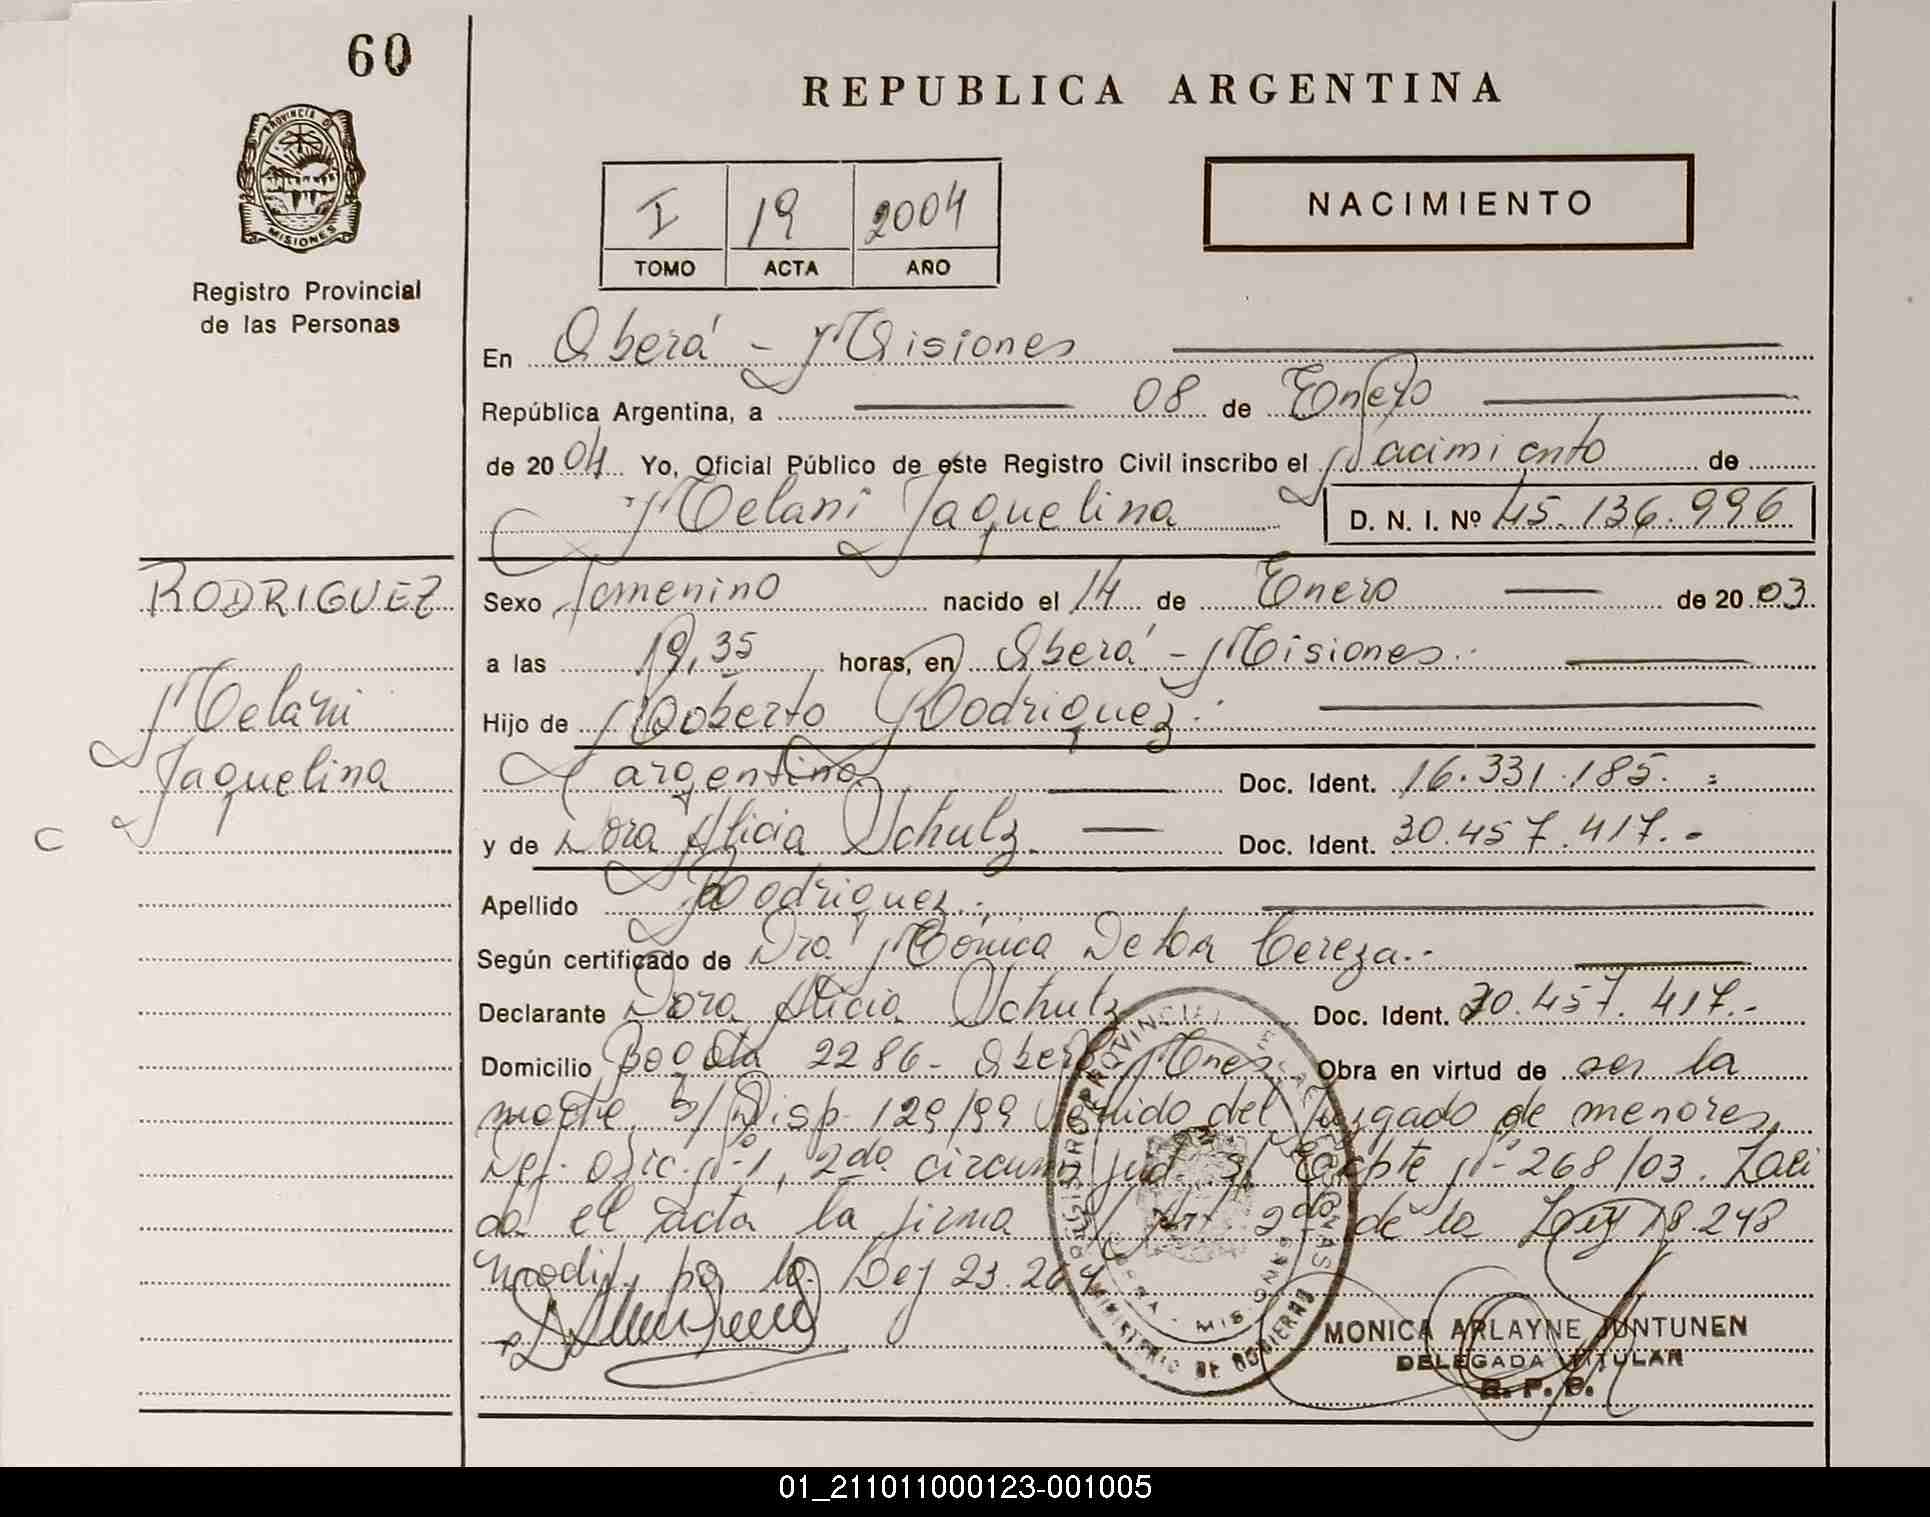 60
REPUBLICA ARGENTINA
PROVINCIA DE
MISIONES
Registro Provincial
de las Personas
I 19 2004
TOMO ACTA AÑO
NACIMIENTO
En Oberá - Misiones
República Argentina, a 08 de Enero
de 2004 Yo, Oficial Público de este Registro Civil inscribo el Nacimiento de
Melani Jaquelina D. N. I. Nº 45.136.996
RODRIGUEZ
Melani
Jaquelina
C
Sexo femenino nacido el 14 de Enero de 2003
a las 19,35 horas, en Oberá - Misiones.
Hijo de Roberto Rodriguez.
argentino Doc. Ident. 16.331.185.
y de Dora Alicia Schulz Doc. Ident. 30.457.417.-
Apellido Rodriguez.
Según certificado de Dra. Mónica De La Cereza.-
Declarante Dora Alicia Schulz Doc. Ident. 30.457.417.-
Domicilio Bogota 2286 - Oberá Mnes. Obra en virtud de ser la
madre, s/ Disp. 129/99 del Juzgado de menores,
1, 2da. circuns. jud. s/ Expte Nº 268/03.
el acta la firma s/ Art 2do de la Ley 18.248
modif. por la Ley 23.264
REGISTRO PROVINCIAL DE LAS PERSONAS
MINISTERIO DE GOBIERNO
MONICA ARLAYNE JUNTUNEN
DELEGADA TITULAR
R. P. P.
01_211011000123-001005